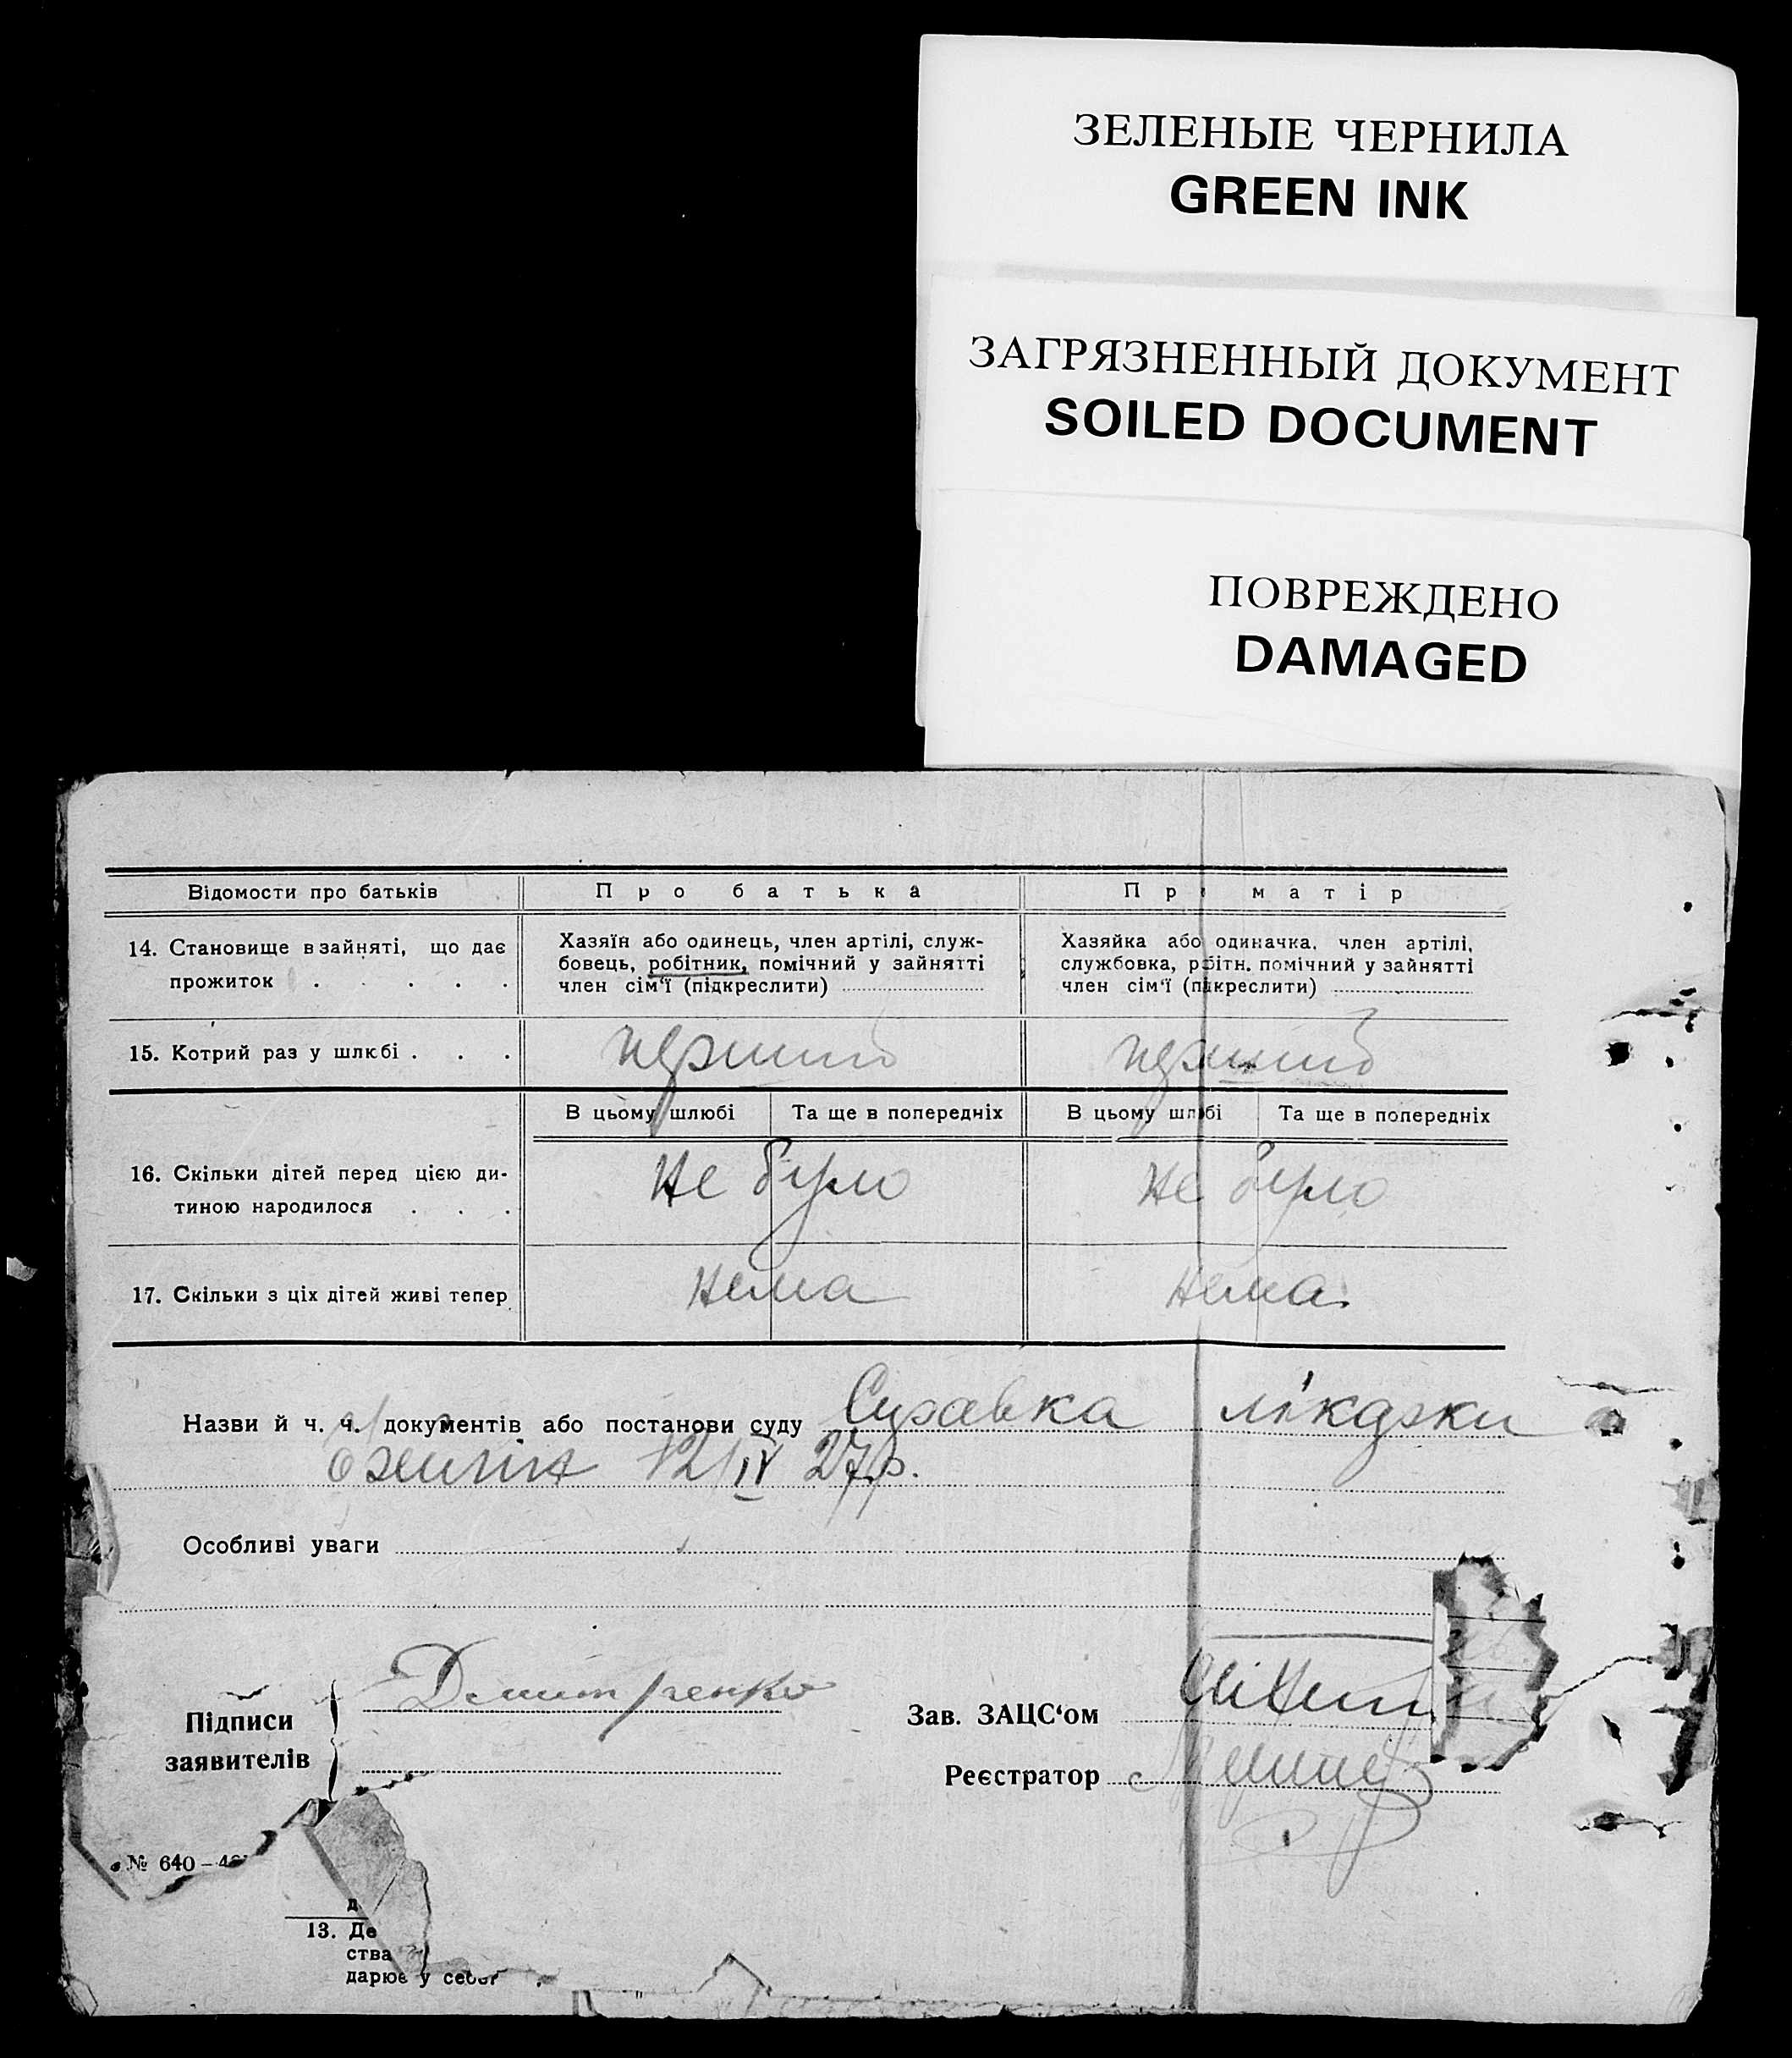 ЗЕЛЕНЫЕ ЧЕРНИЛА
GREEN INK
ЗАГРЯЗНЕННЫЙ ДОКУМЕНТ
SOILED DOCUMENT
ПОВРЕЖДЕНО
DAMAGED
Відомости про батьків
Про батька
Про матір
14. Становище в зайняті, що дає
прожиток . . . . .
Хазяїн або одинець, член артілі, служ-
бовець, робітник, помічний у зайнятті
член сім'ї (підкреслити)
Хазяйка або одиначка, член артілі,
службовка, робітн. помічний у зайнятті
член сім'ї (підкреслити)
15. Котрий раз у шлюбі . . .
перший
перший
В цьому шлюбі
Та ще в попередніх
В цьому шлюбі
Та ще в попередніх
16. Скільки дітей перед цією ди-
тиною народилося . . .
Не було
Не було
17. Скільки з ціх дітей живі тепер
Нема
Нема
Назви й ч. ч. документів або постанови суду
лікарки
12/IV 27р.
Особливі уваги
Підписи
заявителів
Зав. ЗАЦС'ом
Реєстратор
№ 640 –
13. Де
ства
дарює у себе